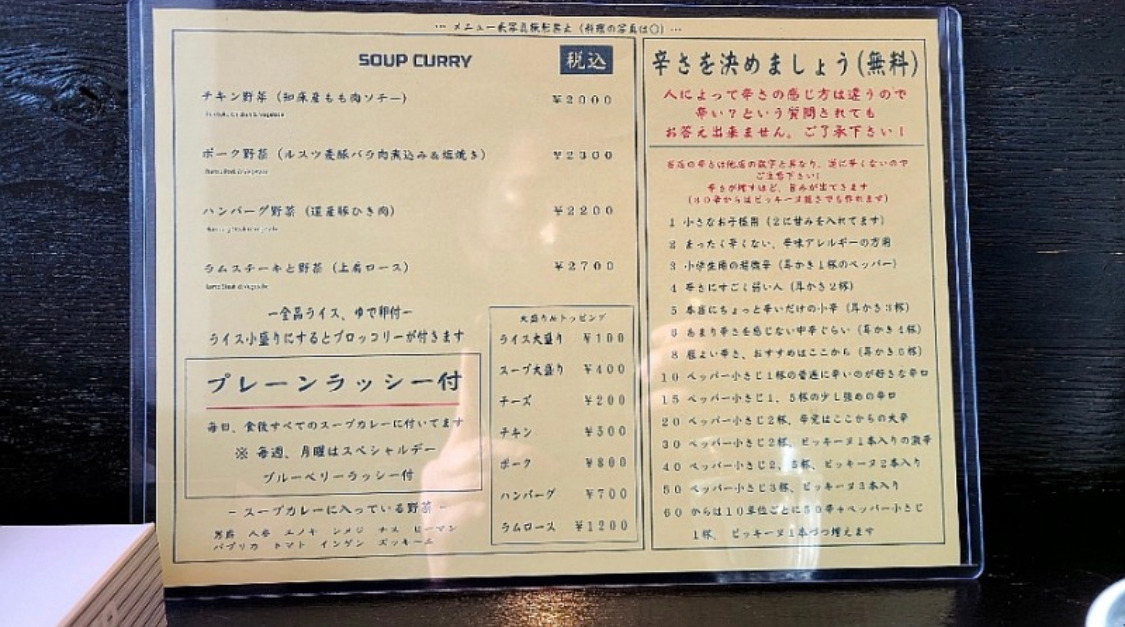 … メニュー表写真撮影禁止 (料理の写真は〇) …
SOUP CURRY
税込
チキン野菜 (知床産もも肉ソテー) ¥2000
ポーク野菜 (ルスツ産豚バラ肉煮込み&塩焼き) ¥2300
ハンバーグ野菜 (道産豚ひき肉) ¥2200
ラムステーキと野菜 (上肩ロース) ¥2700
ー全品ライス、ゆで卵付ー
ライス小盛りにするとブロッコリーが付きます
プレーンラッシー付
毎日、食後すべてのスープカレーに付いてます
※ 毎週、月曜はスペシャルデー
ブルーベリーラッシー付
- スープカレーに入っている野菜 -
人参 エノキ シメジ ナス ピーマン
パプリカ トマト インゲン ズッキーニ
大盛り&トッピング
ライス大盛り ¥100
スープ大盛り ¥400
チーズ ¥200
チキン ¥500
ポーク ¥800
ハンバーグ ¥700
ラムロース ¥1200
辛さを決めましょう(無料)
人によって辛さの感じ方は違うので
辛い?という質問されても
お答え出来ません。ご了承下さい!
当店の辛さは他店の数字と異なり、逆に辛くないので
ご注意下さい!
辛さが増すほど、旨みが出てきます
(30辛からはピッキーヌ抜きでも作れます)
1 小さなお子様用 (2に甘みを入れてます)
2 まったく辛くない、辛味アレルギーの方用
3 小学生用の若微辛 (耳かき1杯のペッパー)
4 辛さにすごく弱い人 (耳かき2杯)
5 本当にちょっと辛いだけの小辛 (耳かき3杯)
6 あまり辛さを感じない中辛ぐらい (耳かき4杯)
8 程よい辛さ、おすすめはここから (耳かき6杯)
10 ペッパー小さじ1杯の普通に辛いのが好きな辛口
15 ペッパー小さじ1.5杯の少し強めの辛口
20 ペッパー小さじ2杯、辛党はここからの大辛
30 ペッパー小さじ2杯、ピッキーヌ1本入りの激辛
40 ペッパー小さじ2.5杯、ピッキーヌ2本入り
50 ペッパー小さじ3杯、ピッキーヌ3本入り
60 からは10単位ごとに50辛+ペッパー小さじ
1杯、ピッキーヌ1本づつ増えます